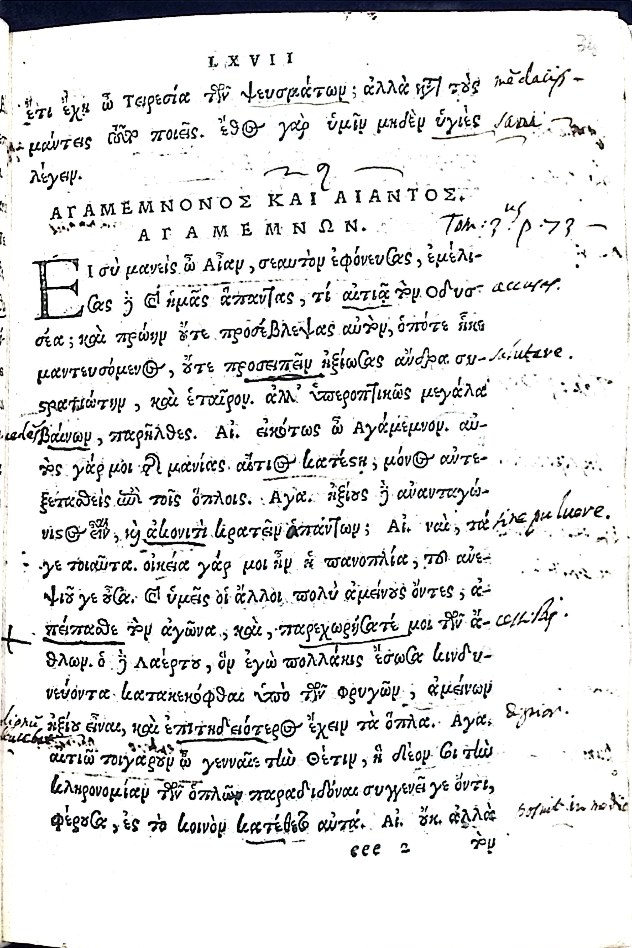 LXVII
ἔτι ἔχῃ ὦ Τειρεσία τῶν ψευσμάτων; ἀλλὰ κατὰ τοὺς
μάντεις τοῦτο ποιεῖς. ἔθος γὰρ ὑμῖν μηδὲν ὑγιὲς
λέγειν.
ΑΓΑΜΕΜΝΟΝΟΣ ΚΑΙ ΑΙΑΝΤΟΣ.
ΑΓΑΜΕΜΝΩΝ.
Tom: 3us p. 73
Εἰ σὺ μανεὶς ὦ Αἶαν, σεαυτὸν ἐφόνευσας, ἐμέλι-
σας δὲ καὶ ἡμᾶς ἅπαντας, τί αἰτιᾷ τὸν Ὀδυσ-
σέα; καὶ πρώην οὔτε προσέβλεψας αὐτὸν, ὁπότε ἧκε
μαντευσόμενος, οὔτε προσειπεῖν ἠξίωσας ἄνδρα συ- salutare.
στρατιώτην, καὶ ἑταῖρον. ἀλλ' ὑπεροπτικῶς μεγάλα
βαίνων, παρῆλθες. Αἰ. εἰκότως ὦ Αγάμεμνον. αὐ-
τὸς γάρ μοι τῆς μανίας αἴτιος κατέστη; μόνος αὐτε-
ξετασθεὶς ἐπὶ τοῖς ὅπλοις. Αγα. ἠξίους δὲ ἀνανταγώ-
νιστος εἶναι, καὶ ἀκονιτὶ κρατεῖν ἁπάντων; Αἰ. ναὶ, τά sine puluere.
γε τοιαῦτα. οἰκεία γάρ μοι ἦν ἡ πανοπλία, τοῦ ἀνε-
ψιοῦ γε οὖσα. καὶ ὑμεῖς οἱ ἄλλοι πολὺ ἀμείνους ὄντες, ἀ-
πείπασθε τὸν ἀγῶνα, καὶ, παρεχωρήσατέ μοι τῶν ἄ-
θλων. ὁ δὲ Λαέρτου, ὃν ἐγὼ πολλάκις ἔσωσα κινδυ-
νεύοντα κατακεκόφθαι ὑπὸ τῶν Φρυγῶν, ἀμείνων
ἠξίου εἶναι, καὶ ἐπιτηδειότερος ἔχειν τὰ ὅπλα. Αγα.
αἰτιῶ τοιγαροῦν ὦ γενναῖε τὴν Θέτιν, ἣ δέον σοι τὴν
κληρονομίαν τῶν ὅπλων παραδιδόναι συγγενεῖ γε ὄντι,
φέρουσα, ἐς τὸ κοινὸν κατέθετο αὐτά. Αἰ. οὔκ. ἀλλὰ
ccc 2 τὸν